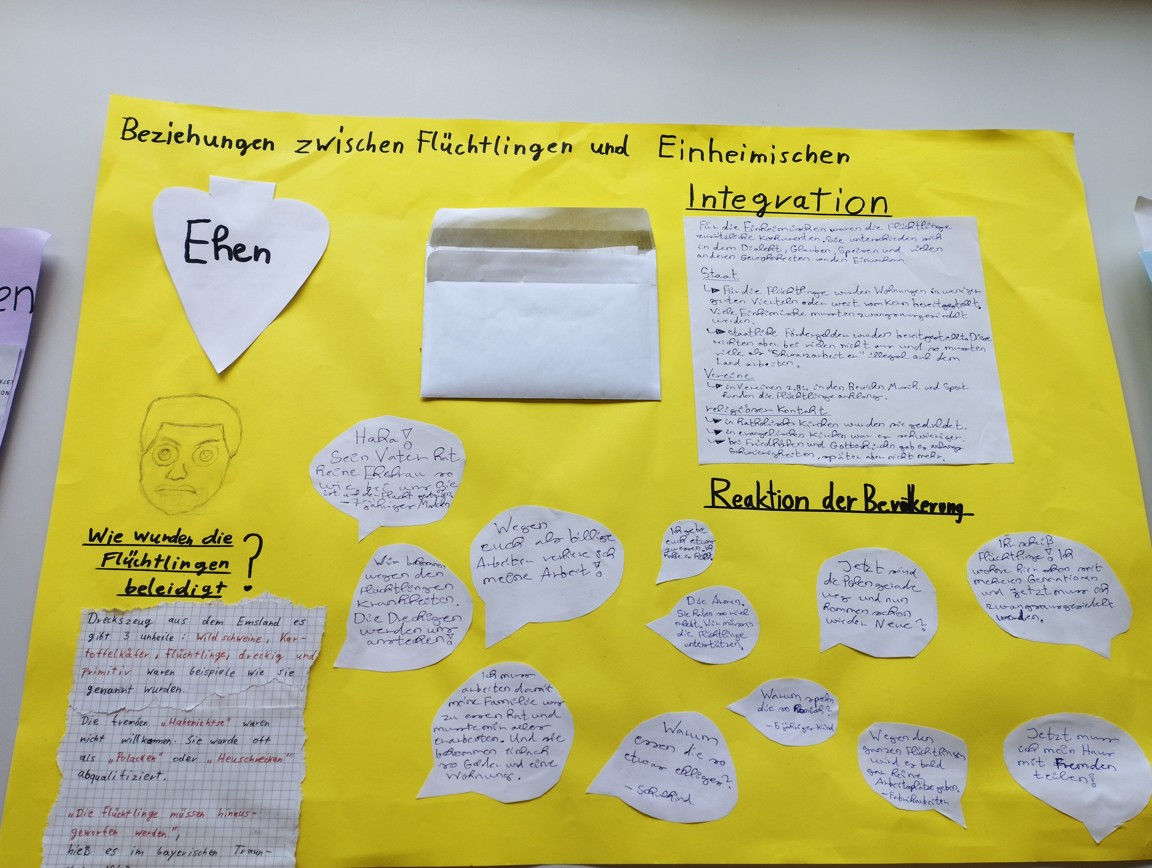 Beziehungen zwischen Flüchtlingen und Einheimischen
Ehen
Integration
Für die Einheimischen waren die Flüchtlinge
zusätzliche Konkurrenten. Sie unterschieden sich
in dem Dialekt, Glauben, Speisen und vielen
anderen Gewohnheiten von den
Staat
Für die Flüchtlinge wurden Wohnungen in weniger
guten Vierteln oder weit vom Kern bereitgestellt.
Viele Einheimische mussten zwangsausgesiedelt
werden.
staatliche Fördergelder wurden bereitgestellt. Diese
reichten aber bei vielen nicht aus und so mussten
viele als "Schwarzarbeiter" illegal auf dem
Land arbeiten.
Vereine
in Vereinen z.B. in den Bereichen Musik und Sport
fanden die Flüchtlinge anklang.
religiöser Kontakt
in Katholische Kirchen wurden sie geduldet.
in evangelischen Kirchen war es schwieriger.
bei Friedhöfen und Gottes gab es anfangs
Schwierigkeiten, später aber nicht mehr.
Reaktion der Bevölkerung
HaHa!
Sein Vater hat
keine Ehefrau so
wie bei uns. Sie
ist auf der Flucht gestorben
- 7 jähriger
Wegen
euch als billige
Arbeiter verliere ich
meine Arbeit!
Ich gebe
euch etwas
zu essen, ich
habe
Wir bekommen
wegen den
Flüchtlingen
Krankheiten.
Die Dreckigen
werden uns
anstecken!
Die Armen.
Sie haben so viel
erlebt. Wir müssen
die Flüchtlinge
unterstützen.
Jetzt sind
die Polen gerade
weg und nun
kommen schon
wieder Neue?
Ich
Flüchtlinge! Ich
wohne hier schon mit
mehreren Generationen
und jetzt muss ich
zwangsausgesiedelt
werden.
Wie wurden die
Flüchtlingen
beleidigt?
Dreckszeug aus dem Emsland es
gibt 3 unheile: Wildschweine, Kar-
toffelkäfer, Flüchtlinge, dreckig und
primitiv waren beispiele wie sie
genannt wurden.
Die fremden „Habenichtse" waren
nicht willkommen. Sie wurde oft
als „Polacken" oder „Heuschrecken"
abqualifiziert.
„Die Flüchtlinge müssen hinaus-
geworfen werden",
hieß es im bayerischen Traun-
Ich muss
arbeiten damit
meine Familie was
zu essen hat und
musste mir alles
erarbeiten. Und sie
bekommen einfach
so Gelder und eine
Wohnung.
Warum
essen die so
etwas ekliges?
- Schulkind
Warum
die so komisch?
- 5 jähriges Kind
Wegen den
ganzen Flüchtlingen
wird es bald
gar keine
Arbeitsplätze geben.
- Fabrikarbeiter
Jetzt muss
ich mein Haus
mit Fremden
teilen!